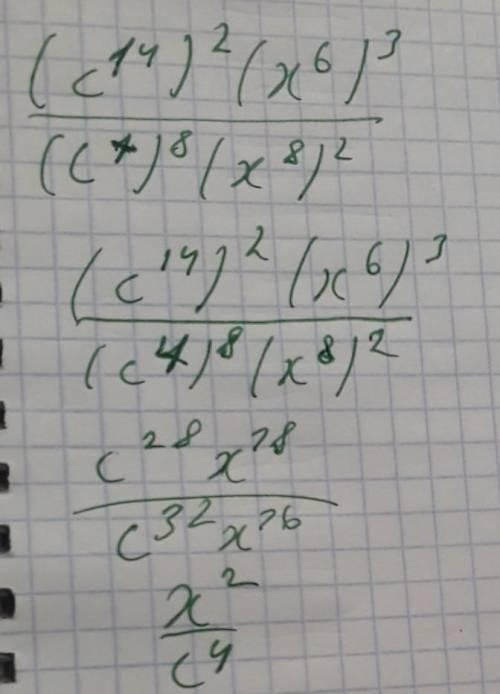 (c^14)^2 (x^6)^3
(c^4)^8 (x^8)^2
(c^14)^2 (x^6)^3
(c^4)^8 (x^8)^2
c^28 x^18
c^32 x^16
x^2
c^4